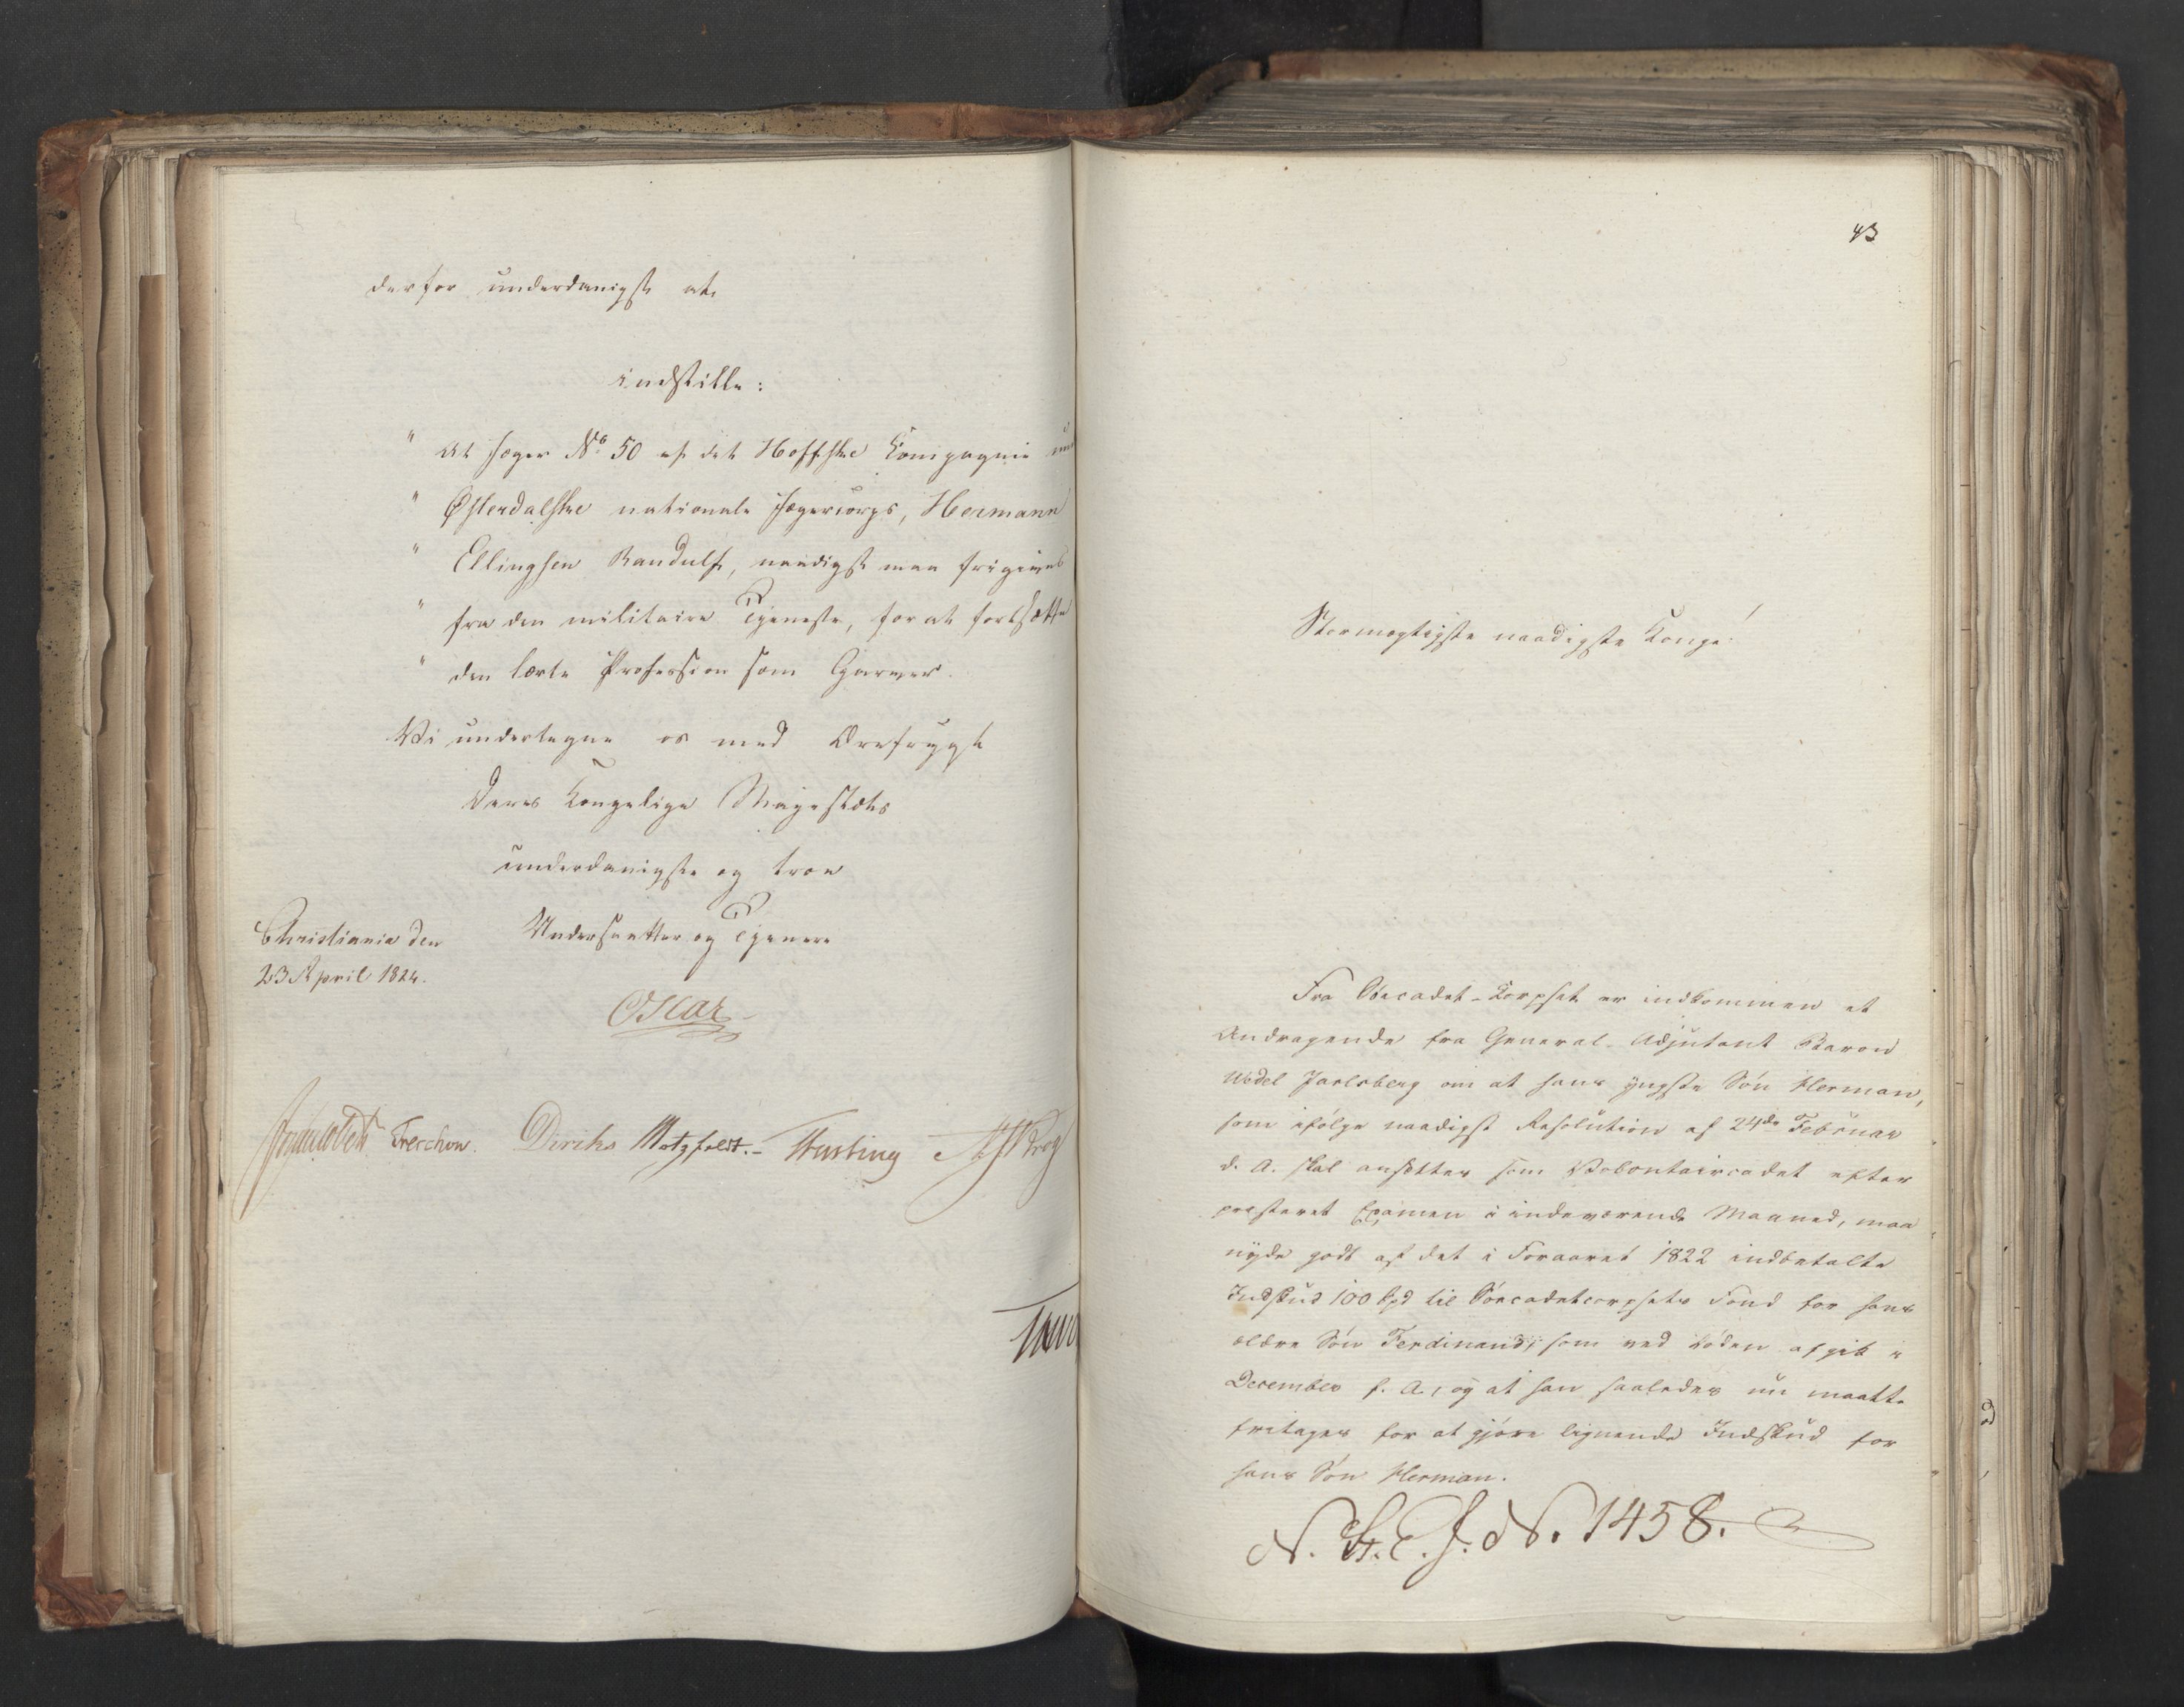 derfor underdanigst at
indstille:
" At Jæger No 50 af det Hoffske Compagnie
" Østerdalske nationale Jægercorps, Hermann
" Ellingsen Randulf, naadigst maa frigives
" fra den militaire Tjeneste, for at fortsætte
" den lærte Profession som Garver.
Vi undertegne os med Ærefrygt
Deres Kongelige Majestæts
underdanigste og troe
Undersaatter og Tjenere
Christiania den
23 April 1824.
Oscar
Treschow. Diriks Motzfeldt. Fasting
43
Stormægtigste naadigste Konge!
Fra Søecadet-Korpset er indkommen et
Andragende fra General-Adjutant Baron
Wedel Jarlsberg om at hans yngste Søn Herman,
som ifølge naadigst Resolution af 24de Februar
d. A. skal ansættes som Volontaircadet efter
præsteret Examen i indeværende Maaned, maa
nyde godt af det i Foraaret 1822 indbetalte
Indskud 100 Spd til Søecadetcorpsets Fond for hans
ældre Søn Ferdinand, som ved Døden afgik i
December f. A., og at han saaledes nu maatte
fritages for at gjøre lignende Indskud for
hans Søn Herman.
N. St. E. J. N. 1458.